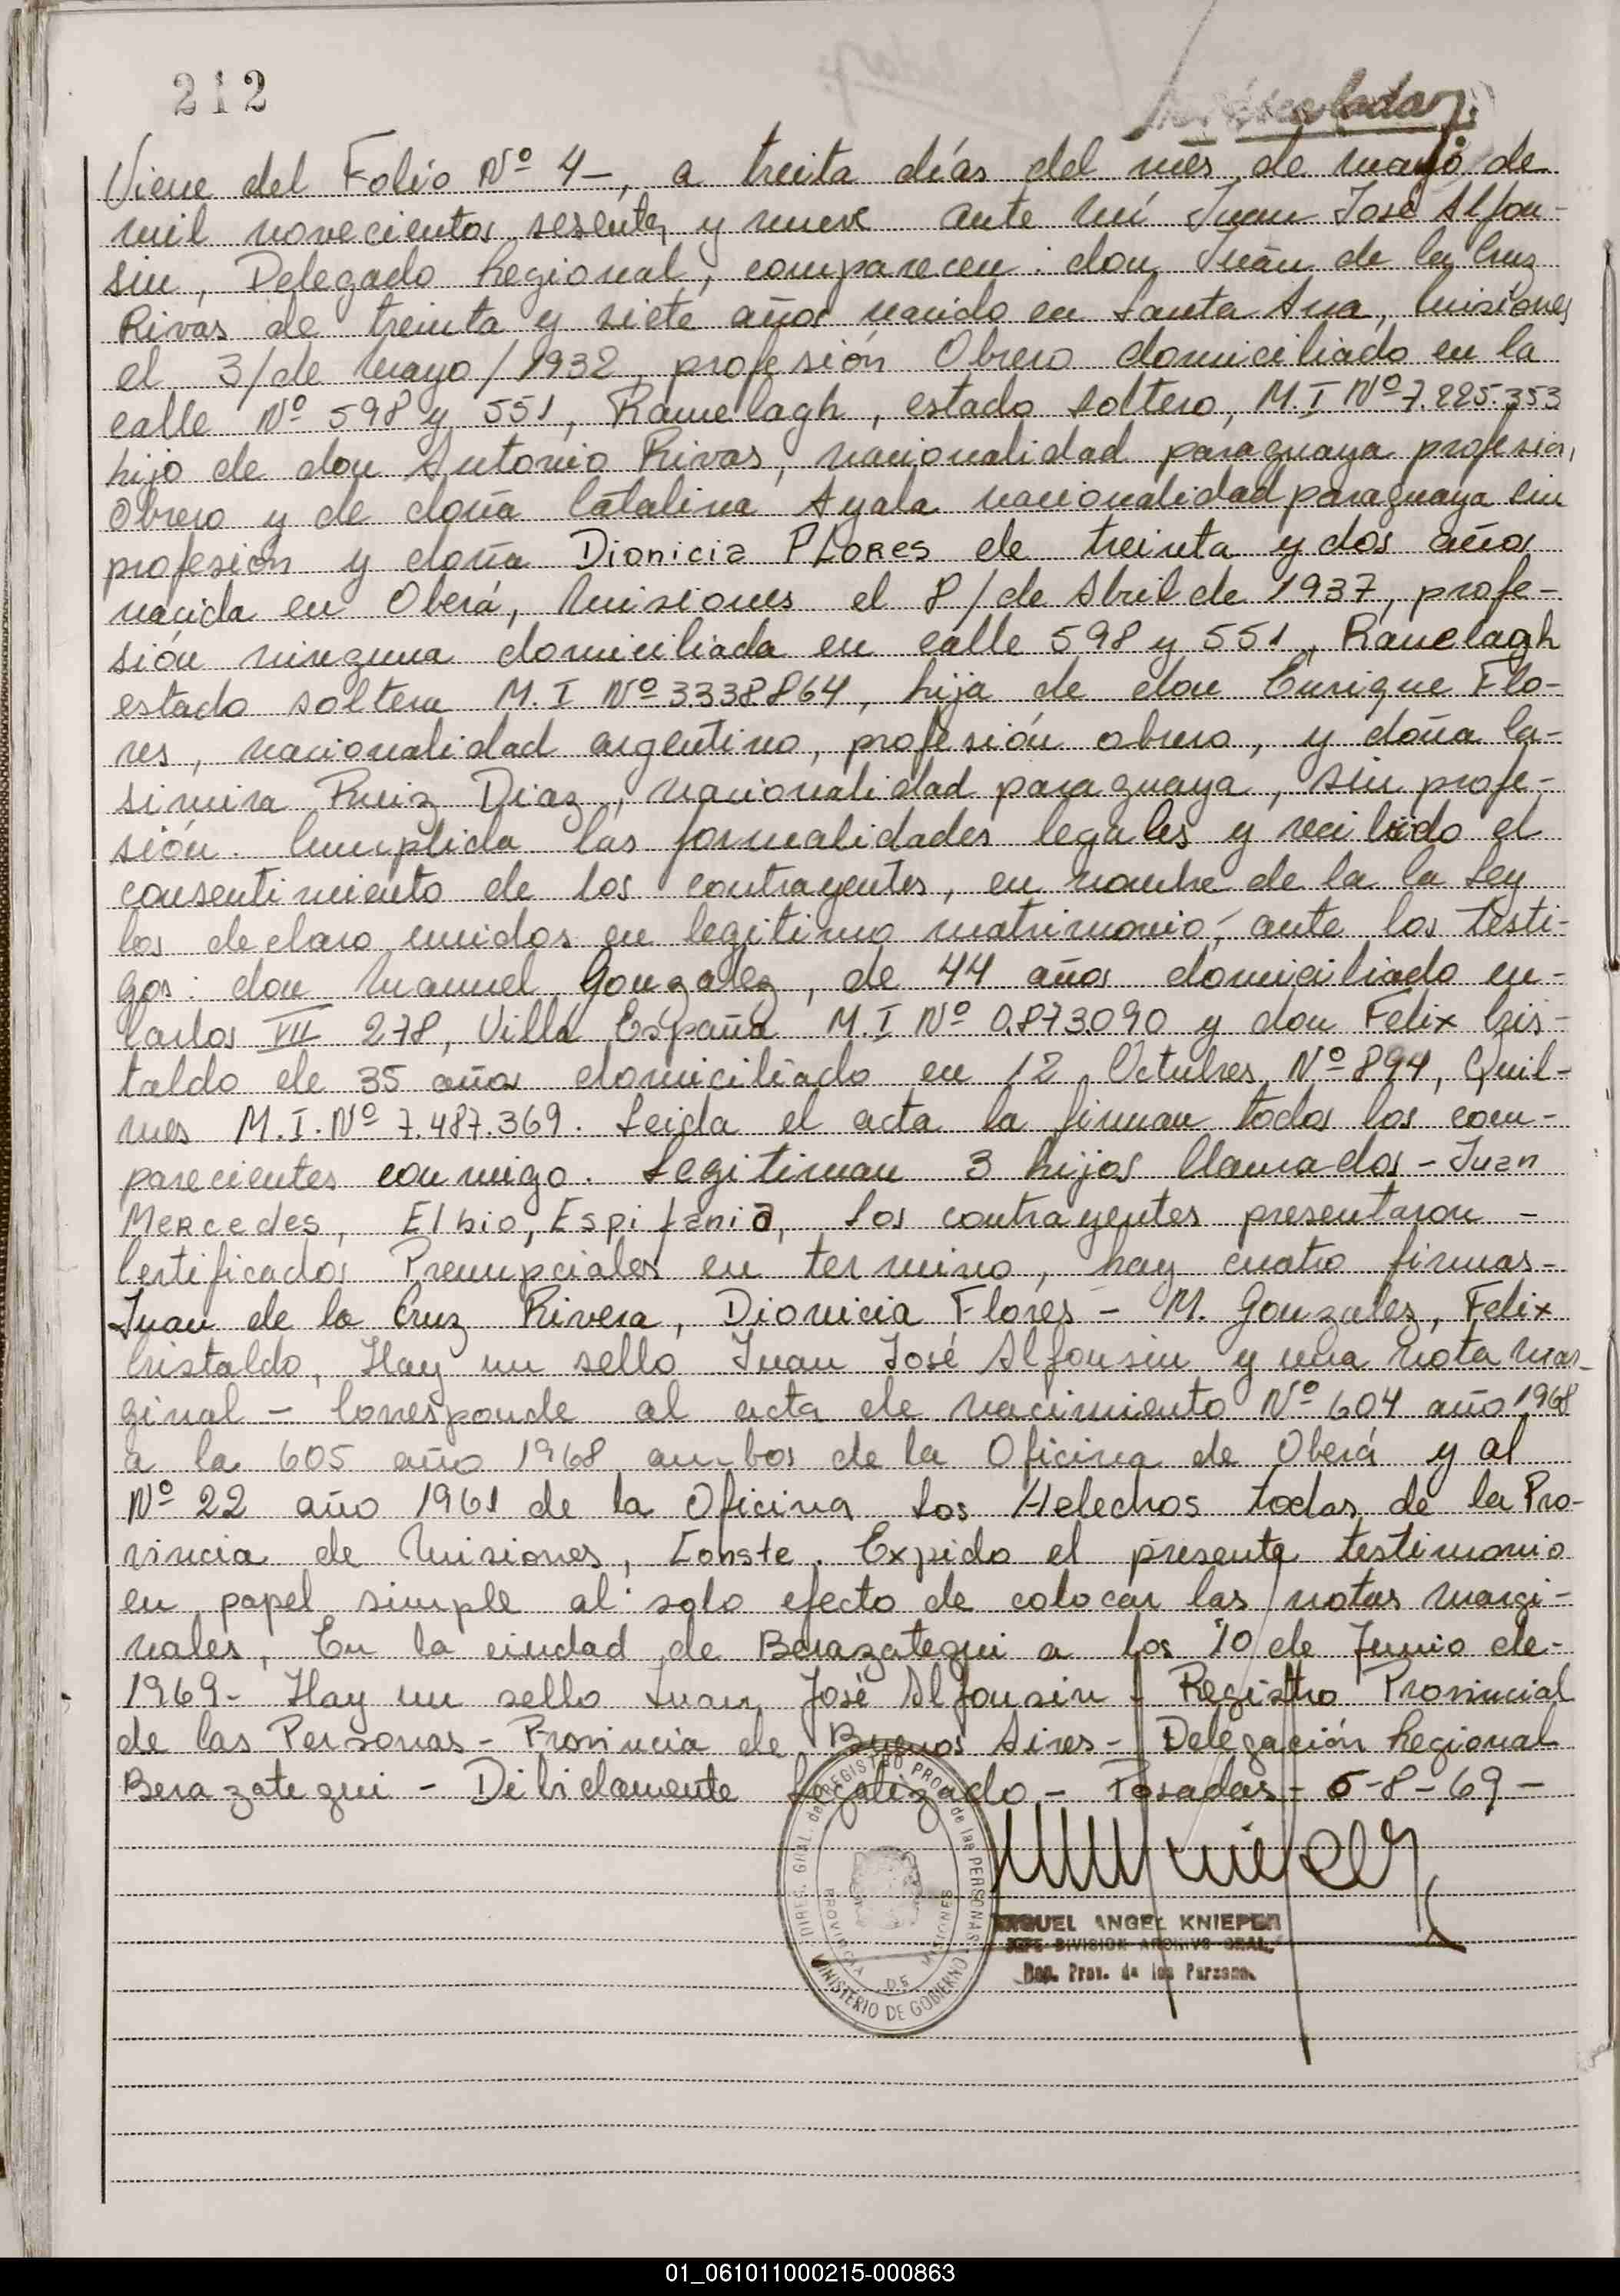 212
Viene del Folio Nº 4-, a treita días del mes de mayo de
mil novecientos sesenta y nueve ante mí Juan José Alfon-
sin, Delegado Regional, comparecen: don Juan de la Cruz
Rivas de treinta y siete años nacido en Santa Ana, Misiones
el 3/de Mayo/1932, profesión Obrero domiciliado en la
calle Nº 598 y 551, Ranelagh, estado soltero, M.I Nº 7.225.353
hijo de don Antonio Rivas, nacionalidad paraguaya profesión,
Obrero y de doña Catalina Ayala nacionalidad paraguaya sin
profesión y doña Dionicia FLores de treinta y dos años
nacida en Oberá, Misiones el 8/de Abril de 1937, profe-
sión ninguna domiciliada en calle 598 y 551, Ranelagh
estado soltera M.I Nº 3338864, hija de don Enrique Flo-
res, nacionalidad argentino, profesión obrero, y doña Ca-
simira Ruiz Diaz, nacionalidad paraguaya, sin profe-
sión. Cumplida las formalidades legales y recibido el
consentimiento de los contrayentes, en nombre de la la Ley
los declaro unidos en legitimo matrimonio, ante los testi-
gos: don Manuel Gonzalez, de 44 años domiciliado en-
Carlos VII 278, Villa España M.I Nº 0.873.090 y don Felix Cris-
taldo de 35 años domiciliado en 12 Octubres Nº 894, Quil-
mes M.I. Nº 7.487.369. Leida el acta la firman todos los com-
parecientes conmigo. Legitiman 3 hijos llamados - Juan
Mercedes, Elbio, Espifania, Los contrayentes presentaron -
Certificados Prenupciales en termino, hay cuatro firmas-
Juan de la Cruz Rivera, Dionicia Flores - M. Gonzalez, Felix
Cristaldo, Hay un sello Juan José Alfonsin y una nota mar-
ginal - Corresponde al acta de nacimiento Nº 604 año 1968
a la 605 año 1968 ambos de la Oficina de Oberá y al
Nº 22 año 1961 de la Oficina Los Helechos todas de la Pro-
vincia de Misiones, Conste. Expido el presente testimonio
en papel simple al solo efecto de colocar las notas margi-
nales, En la ciudad de Berazategui a los 10 de Junio de-
1969- Hay un sello Juan José Alfonsin - Registro Provincial
de las Personas - Provincia de Buenos Aires - Delegación Regional
Berazategui - Debidamente Legalizado - Posadas - 5-8-69-
DIREC. GRAL. del REGISTRO PROV. de las PERSONAS
PROVINCIA DE MISIONES
MINISTERIO DE GOBIERNO
MIGUEL ANGEL KNIEPER
JEFE DIVISION ARCHIVO GRAL.
Reg. Prov. de las Persona.
01_061011000215-000863